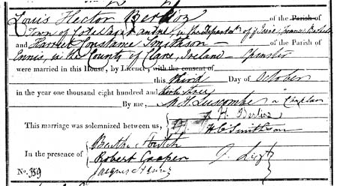 Louis Hector Berlioz of the Parish
Town of Cote Saint André, in the Department of Isère, France, Bachelor
and Harriet Constance Smithson of the Parish
Ennis, in the County of Clare, Ireland, Spinster
were married in this House, by Licence, with the consent of
this third Day of October
in the year One thousand eight hundred and thirty three
By me, M. H. Luscombe a Chaplain
This marriage was solemnized between us, H. Berlioz
H C Smithson
In the presence of Bertha Stritch
Robert Cooper
Jacques Henry F. Liszt
No. 189